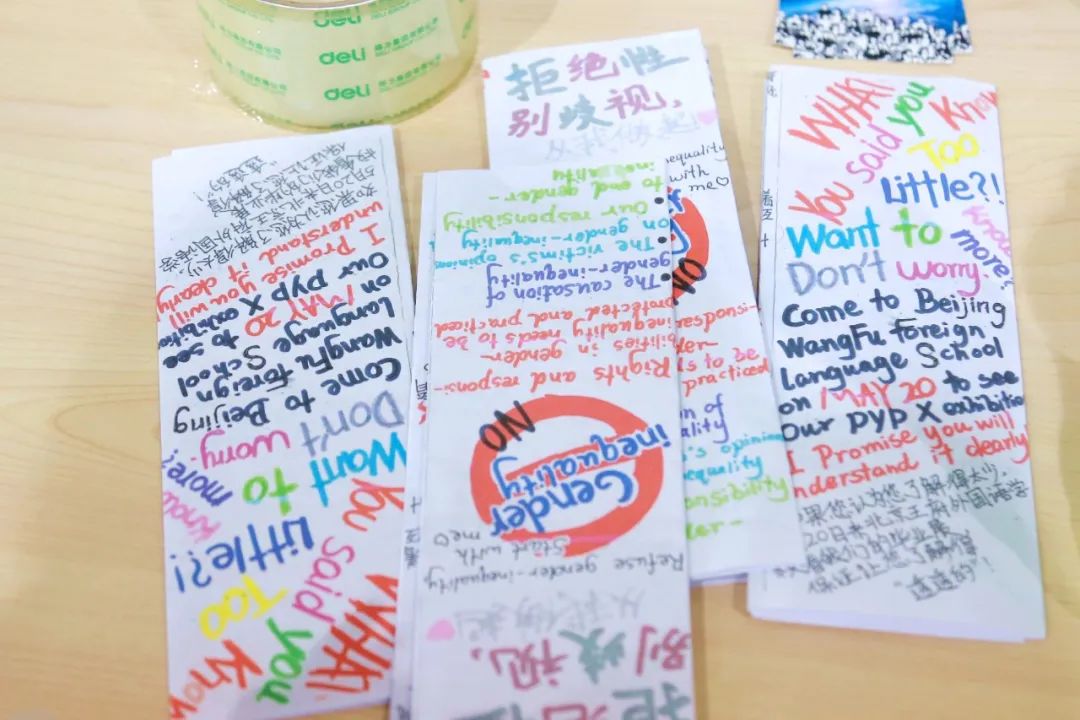 deli
deli
deli
拒绝性
别歧视,
从我做起!
inequality
with
me♡
NO
practiced
WHAT
You said you Know
Too
Little?!
Want to Know
more?
Don't worry.
Come to Beijing
WangFu Foreign
Language School
on MAY 20 to see
Our PYP X exhibition
I Promise you will
understand it clearly
果您认为您了解得太少,
20日来北京王府外国语学
看我们的毕业展
保证让您了解得
"透透的"!
拒绝性
别歧视,
从我做起!
Refuse gender-inequality
Start with me♡
Gender
inequality
NO
Rights and responsi-
bilities in gender-
inequality needs to be
protected and practiced
• The causation of
gender-inequality
• The victims's opinions
on gender-inequality
• Our responsibility
to end gender-
inequality
WHAT
You said you Know
Too
Little?!
Want to Know
more?
Don't worry.
Come to Beijing
WangFu Foreign
Language School
on MAY 20 to see
Our PYP X exhibition
I Promise you will
understand it clearly
如果您认为您了解得太少,
5月20日来北京王府外国语学
校看我们的毕业展
保证让您了解得
"透透的"!